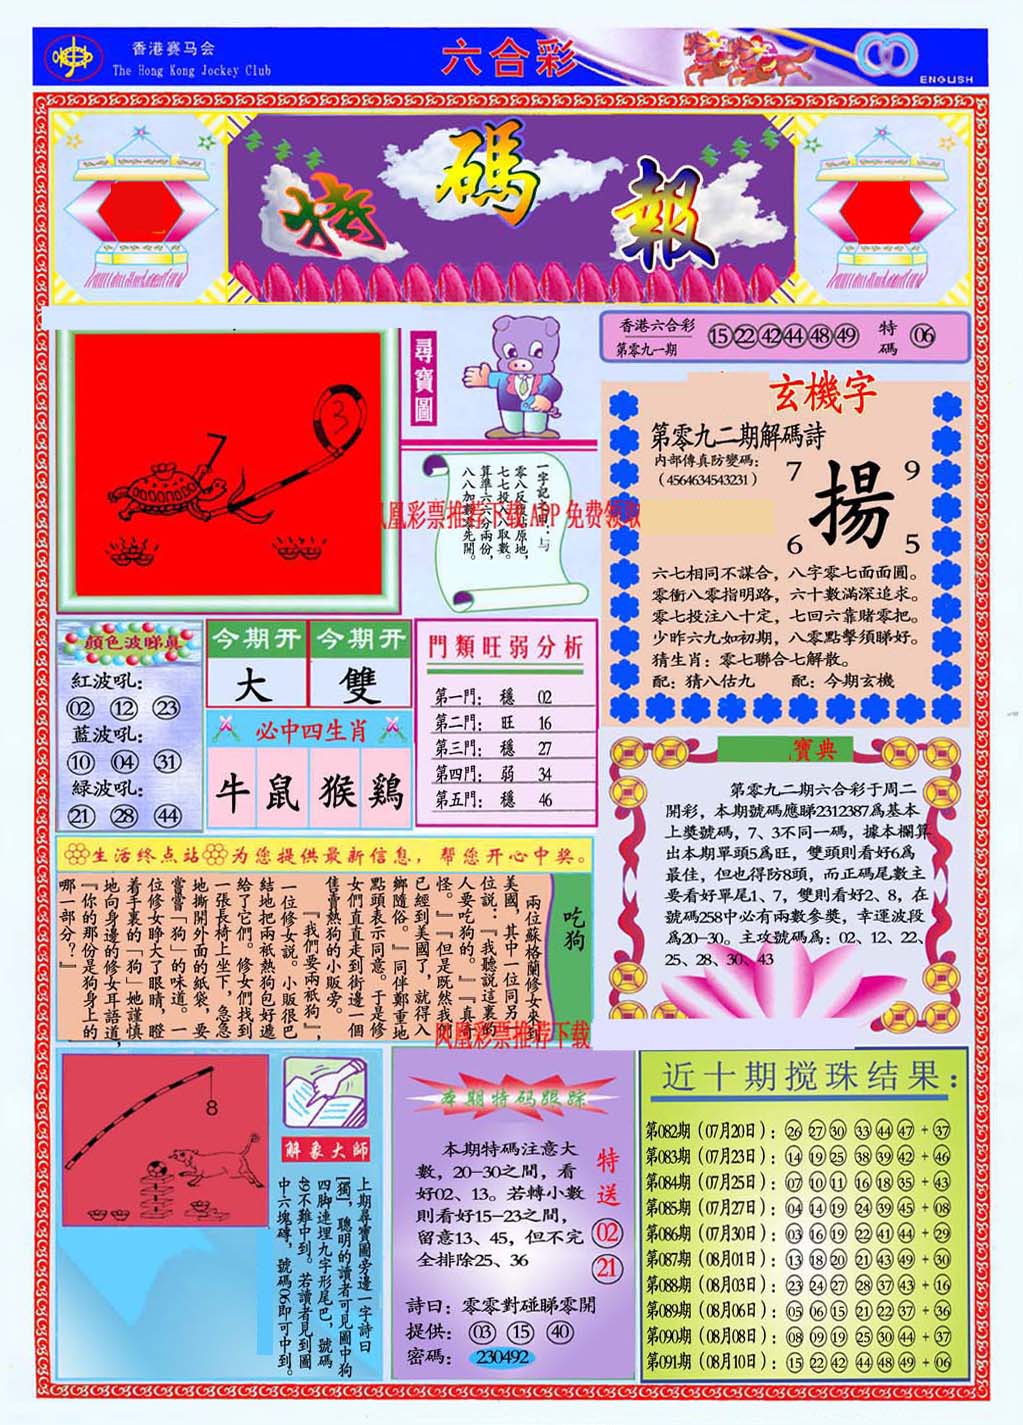 香港赛马会
The Hong Kong Jockey Club
六合彩
ENGLISH
特碼報
尋寶圖
3
香港六合彩
第零九一期
15 22 42 44 48 49
特碼
06
玄機字
第零九二期解碼詩
内部傳真防變碼：
（4564634543231）
7 9
揚
6 5
六七相同不謀合，八字零七面面圓。
零衝八零指明路，六十數滿深追求。
零七投注八十定，七回六靠賭零把。
少昨六九如初期，八零點擊須睇好。
猜生肖：零七聯合七解散。
配：猜八估九 配：今期玄機
一字記之曰：与
零八反復站原地，
七七投入八取數。
算準六六分兩份，
八八加數零先開。
凤凰彩票推荐下载 APP 免费领取
顔色波睇真
紅波吼：
02 12 23
藍波吼：
10 04 31
緑波吼：
21 28 44
今期开 今期开
大 雙
必中四生肖
牛 鼠 猴 鷄
門類旺弱分析
第一門： 穩 02
第二門： 旺 16
第三門： 穩 27
第四門： 弱 34
第五門： 穩 46
寶典
第零九二期六合彩于周二
開彩，本期號碼應睇2312387爲基本
上獎號碼，7、3不同一碼，據本欄算
出本期單頭5爲旺，雙頭則看好6爲
最佳，但也得防8頭，而正碼尾數主
要看好單尾1、7，雙則看好2、8，在
號碼258中必有兩數參獎，幸運波段
爲20-30。主攻號碼爲：02、12、22、
25、28、30、43
生活终点站 为您提供最新信息，帮您开心中奖。
吃狗
兩位蘇格蘭修女來到
美國，其中一位同另一
位説：『我聽説這裏的
人要吃狗的。』『真奇
怪。』『但是既然我們
已經到美國了，就得入
鄉隨俗。』同伴鄭重地
點頭表示同意。于是修
女們直直走到街邊一個
售賣熱狗的小販旁。
『我們要兩衹狗』，
一位修女説。小販很巴
結地把兩衹熱狗包好遞
給了它們。修女們找到
一張長椅上坐下，急急
地撕開外面的紙袋，要
嘗嘗「狗」的味道。一
位修女睁大了眼睛，瞪
着手裏的「狗」她謹慎
地向身邊的修女耳語道，
『你的那份是狗身上的
哪一部分？』
凤凰彩票推荐下载
8
解象大師
上期尋寶圖旁邊一字詩曰
[獨]，聰明的讀者可見圖中狗
四脚連埋九字形尾巴，號碼
49不難中到。若讀者見到圖
中六塊磚，號碼06即可中到。
本期特码跟踪
本期特碼注意大
數，20-30之間，看
好02、13。若轉小數
則看好15-23之間，
留意13、45，但不完
全排除25、36
特送
02
21
詩曰：零零對碰睇零開
提供： 03 15 40
密碼： 230492
近十期搅珠结果：
第082期（07月20日）：26 27 30 33 44 47 + 37
第083期（07月23日）：14 19 25 38 39 42 + 46
第084期（07月25日）：07 10 11 16 18 35 + 43
第085期（07月27日）：04 14 19 24 39 45 + 08
第086期（07月30日）：03 16 19 22 41 44 + 29
第087期（08月01日）：13 18 20 21 43 49 + 30
第088期（08月03日）：23 24 27 28 37 43 + 16
第089期（08月06日）：05 06 15 21 22 37 + 36
第090期（08月08日）：08 09 19 25 30 44 + 37
第091期（08月10日）：15 22 42 44 48 49 + 06